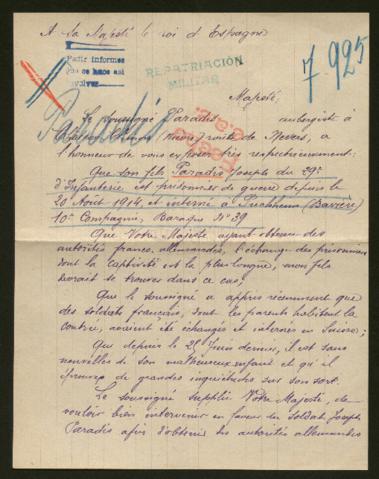 A Sa Majesté le roi d'Espagne
Pedir informes
que se haga así
REPATRIACIÓN
MILITAR
7.925
Paradis
Majesté,
Le soussigné Paradis aubergiste à
route de Nevers, a
l'honneur de vous exposer très respectueusement:
Que son fils Paradis Joseph du 29e
d'Infanterie est prisonnier de guerre depuis le
20 Août 1914, et interné à Puchheim (Bavière)
10e Compagnie, Baraque No 39
Que Votre Majesté ayant obtenu des
autorités franco-allemandes, l'échange des prisonniers
dont la captivité est la plus longue, mon fils
serait se trouver dans ce cas;
Que le soussigné a appris récemment que
des soldats français, dont les parents habitent la
contrée, avaient été échangés et internés en Suisse;
Que depuis le 25 Juin dernier, il est sans
nouvelles de son malheureux enfant et qu'il
éprouve de grandes inquiétudes sur son sort.
Le soussigné supplie Votre Majesté, de
vouloir bien intervenir en faveur du soldat Joseph
Paradis afin d'obtenir des autorités allemandes